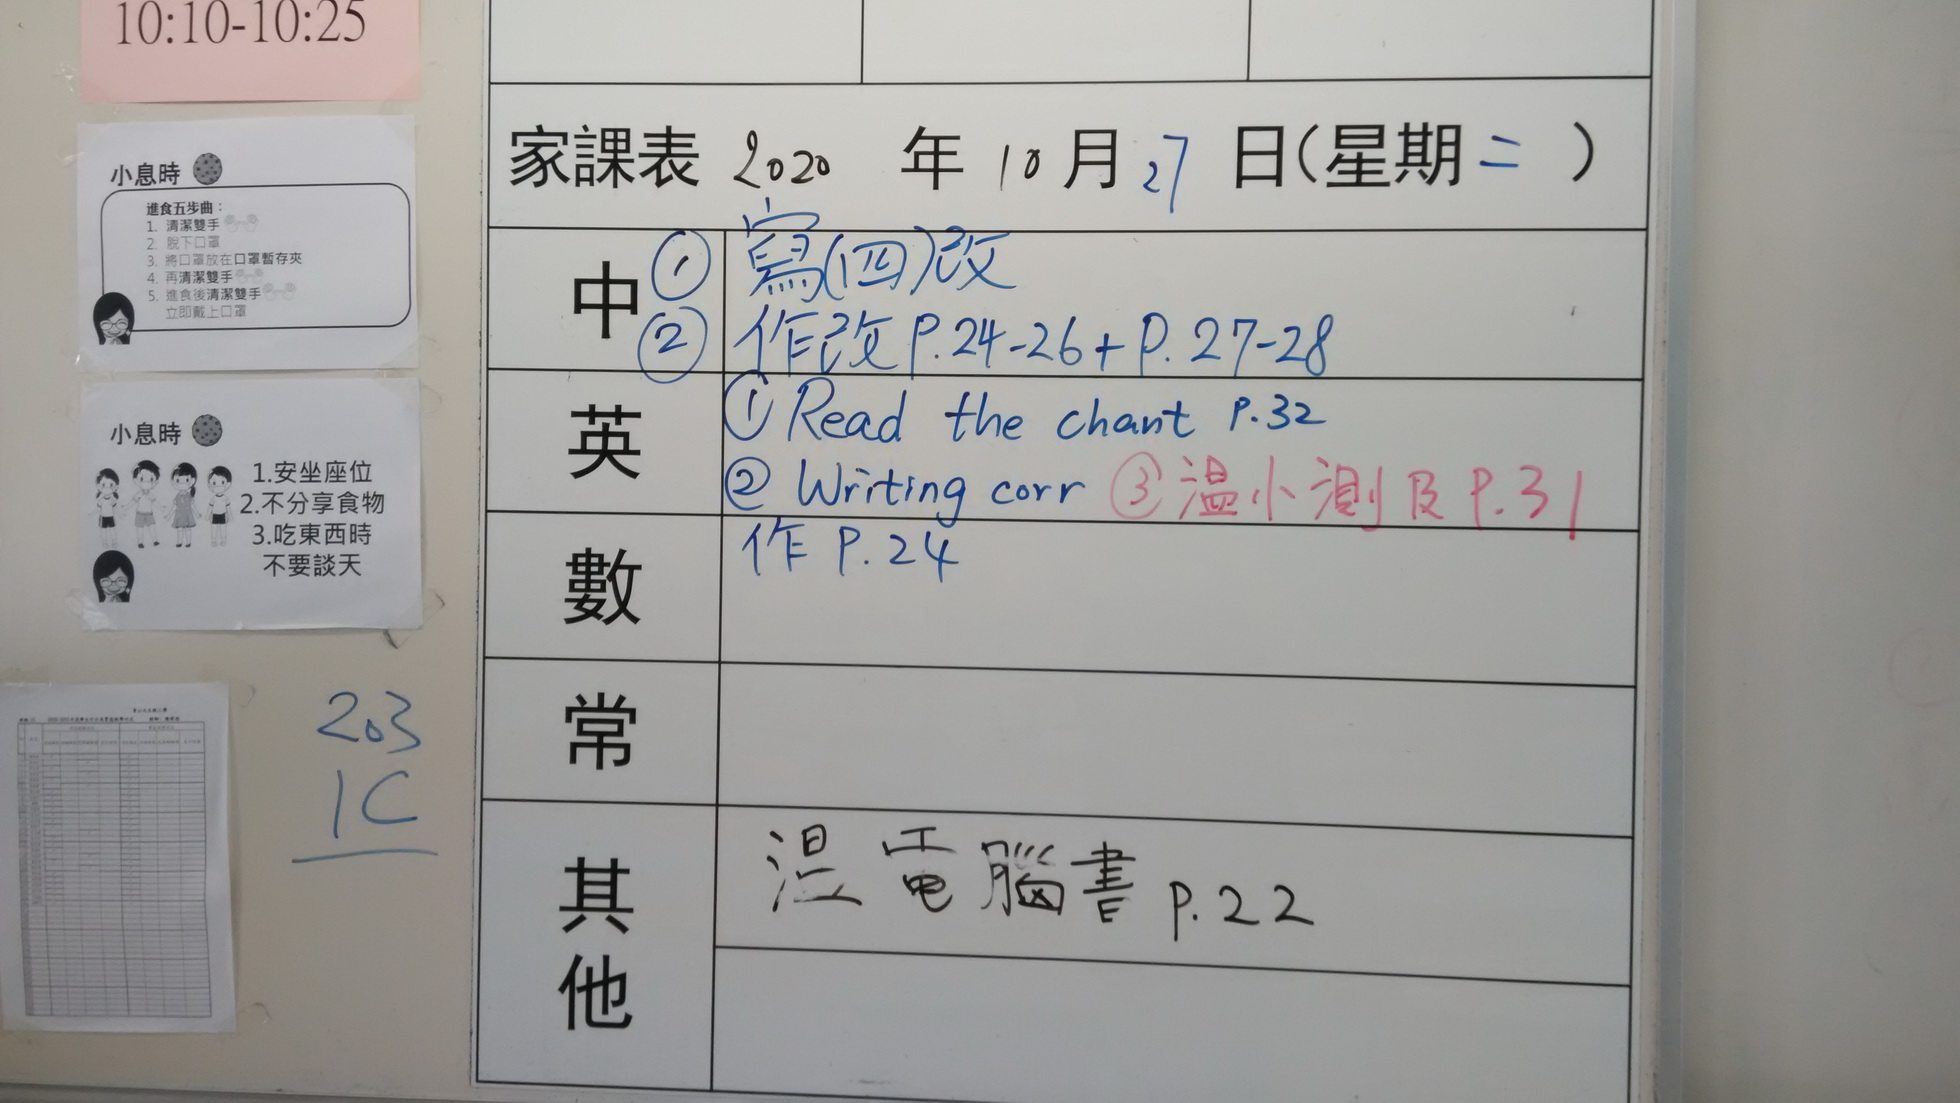 10:10-10:25
小息時
進食五步曲：
1. 清潔雙手
2. 脫下口罩
3. 將口罩放在口罩暫存夾
4. 再清潔雙手
5. 進食後清潔雙手
立即戴上口罩
小息時
1.安坐座位
2.不分享食物
3.吃東西時
不要談天
203
1C
家課表 2020 年 10 月 27 日(星期二)
中 ① 寫(四)改
② 作改 P.24-26 + P.27-28
英 ① Read the chant P.32
② Writing corr ③ 温小測及 P.31
數 作 P.24
常
其他 温電腦書 P.22